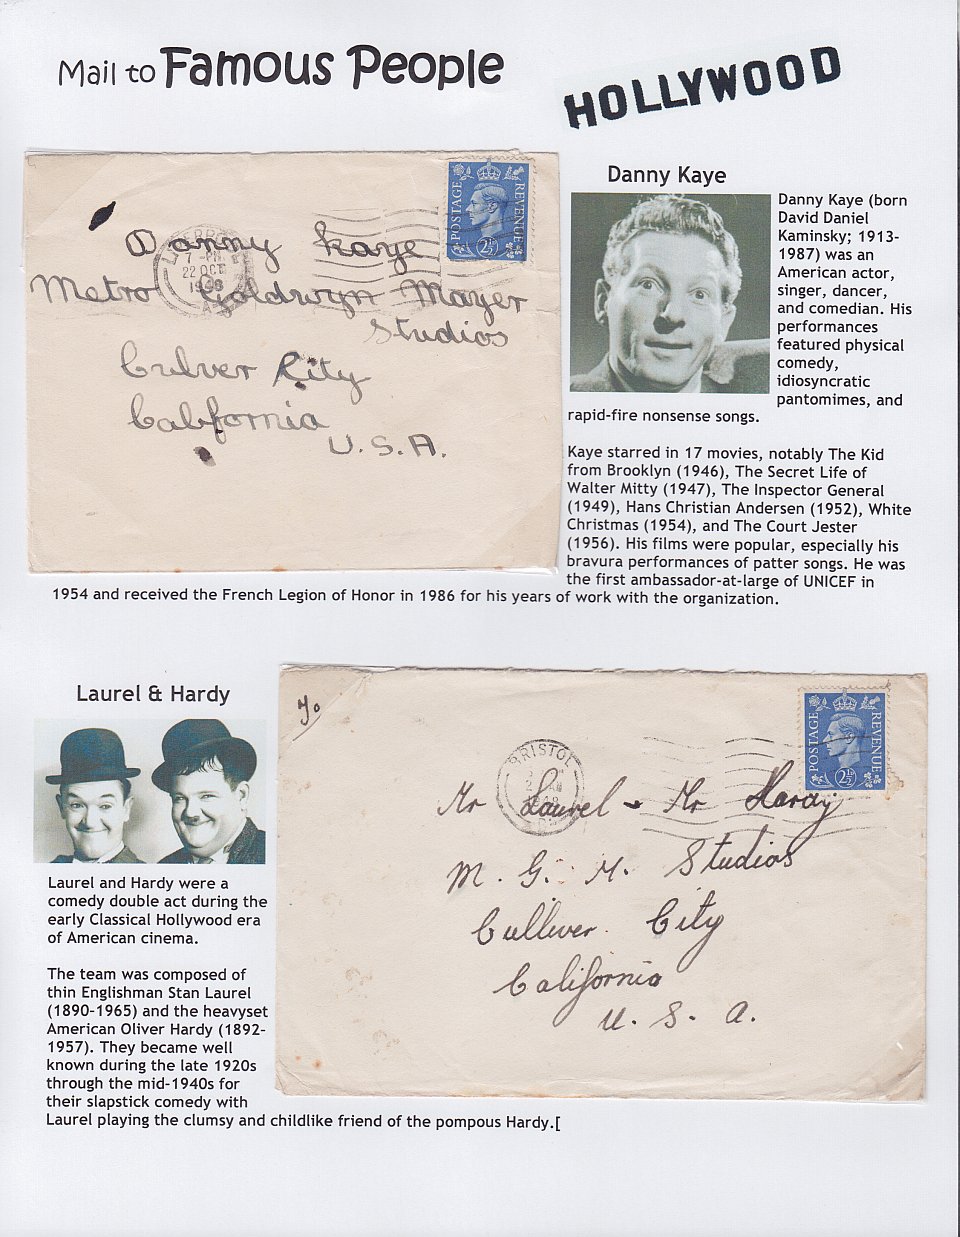 Mail to Famous People
HOLLYWOOD
POSTAGE REVENUE
2½D
LIVERPOOL
7 - PM
22 OCT
1948
Danny Kaye
Metro Goldwyn Mayer
Studios
Culver City
California
U.S.A.
Danny Kaye
Danny Kaye (born
David Daniel
Kaminsky; 1913-
1987) was an
American actor,
singer, dancer,
and comedian. His
performances
featured physical
comedy,
idiosyncratic
pantomimes, and
rapid-fire nonsense songs.
Kaye starred in 17 movies, notably The Kid
from Brooklyn (1946), The Secret Life of
Walter Mitty (1947), The Inspector General
(1949), Hans Christian Andersen (1952), White
Christmas (1954), and The Court Jester
(1956). His films were popular, especially his
bravura performances of patter songs. He was
the first ambassador-at-large of UNICEF in
1954 and received the French Legion of Honor in 1986 for his years of work with the organization.
Laurel & Hardy
Laurel and Hardy were a
comedy double act during the
early Classical Hollywood era
of American cinema.
The team was composed of
thin Englishman Stan Laurel
(1890-1965) and the heavyset
American Oliver Hardy (1892-
1957). They became well
known during the late 1920s
through the mid-1940s for
their slapstick comedy with
Laurel playing the clumsy and childlike friend of the pompous Hardy.[
To
POSTAGE REVENUE
2½D
BRISTOL
Mr Laurel - Mr Hardy
M. G. M. Studios
Culliver City
California
U. S. A.